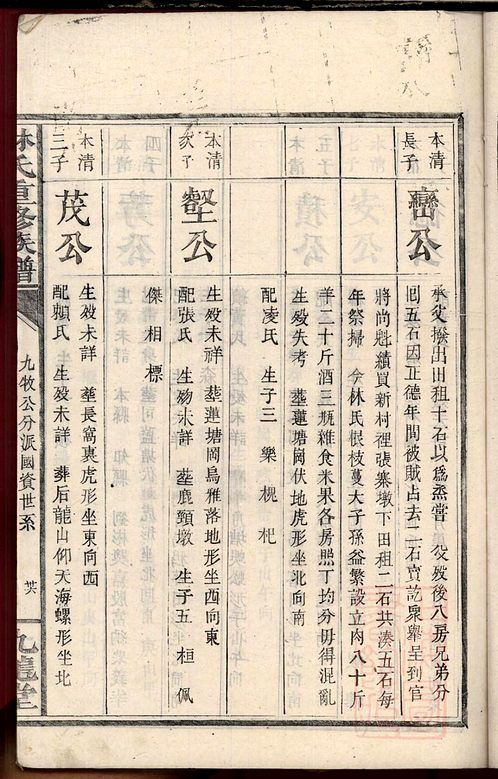 本清
長子
巒公
承父撥出田租十石以為烝嘗 父歿後八房兄弟分
囘五石因正德年間被賊占去二石賣訖衆舉呈到官
將尚魁續買新村裡張寨墩下田租二石共湊五石每
年祭掃 今林氏根枝蔓大子孫益繁設立肉八十斤
羊二十斤酒三瓶雜食米果各房照丁均分毋得混亂
生歿失考 塟蓮塘崗伏地虎形坐北向南
配凌氏 生子三 樂 梘 杷
本清
次子
壑公
生歿未祥 塟蓮塘岡烏雅落地形坐西向東
配張氏 生歿未詳 塟鹿頸墩 生子五 桓 佩
傑 相 標
本清
三子
茂公
生歿未詳 塟長窩裏虎形坐東向西
配賴氏 生歿未詳 葬后龍山仰天海螺形坐北
林氏重修族譜
九牧公分派國資世系
九龍堂